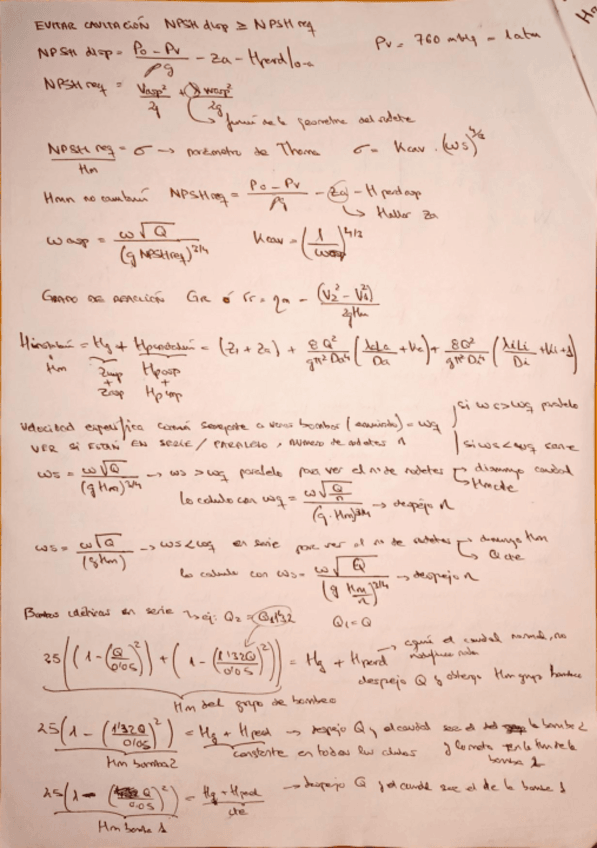 EVITAR CAVITACIÓN NPSH disp ≥ NPSH req
Pv = 760 mmHg = 1 atm
NPSH disp = (Po - Pv)/ρg - Za - Hperd|o-a
NPSH req = Vasp²/2g + λ wasp²/2g
función de la geometría del rodete
NPSH req/Hm = σ → parámetro de Thoma σ = Kcav · (ωs)^4/3
NPSH req = (Po - Pv)/ρg - Za - H perd asp
↳ Hallar Za
ω asp = ω√Q/(g NPSHreq)^3/4 Kcav = (1/ωasp)^4/3
GRADO DE REACCIÓN GR ó σr = ηm - (V2² - V1²)/2gHm
Hinstalación = Hg + Hperdida = (Zi + Za) + 8Q²/gπ²Da⁴ (λaLa/Da + Ka) + 8Q²/gπ²Di⁴ (λiLi/Di + Ki + 1)
Hm Zimp + Zasp Hpasp + Hpimp
Velocidad específica común a varias bombas = ωq
si ωs > ωq paralelo
VER SI ESTÁN EN SERIE / PARALELO, NUMERO de rodetes n
si ωs < ωq serie
ωs = ω√Q/(g Hm)^3/4 → ωs > ωq paralelo para ver el nº de rodetes → disminuye caudal
Hm cte
lo calculo con ωq = ω√(Q/n)/(g·Hm)^3/4 → despejo n
ωs = ω√Q/(gHm) → ωs < ωq en serie para ver el nº de rodetes → disminuye Hm
Q cte
lo calculo con ωs = ω√Q/(g Hm/n)^3/4 → despejo n
Bombas idénticas en serie → ej: Q2 = Q1 1'32 Q1 = Q
25((1 - (Q/0'05)²) + (1 - (1'32Q/0'05)²)) = Hg + Hperd → aquí el caudal normal, no
despejo Q y obtengo Hm grupo bombeo
Hm del grupo de bombeo
25(1 - (1'32Q/0'05)²) = Hg + Hperd → despejo Q y el caudal sae el de la bomba 2
Hm bomba 2 constante en todos los lados y lo meto en la Hm de la
bomba 2
25(1 - (Q/0.05)²) = Hg + Hperd → despejo Q y el caudal sae el de la bomba 1
Hm bomba 1 cte